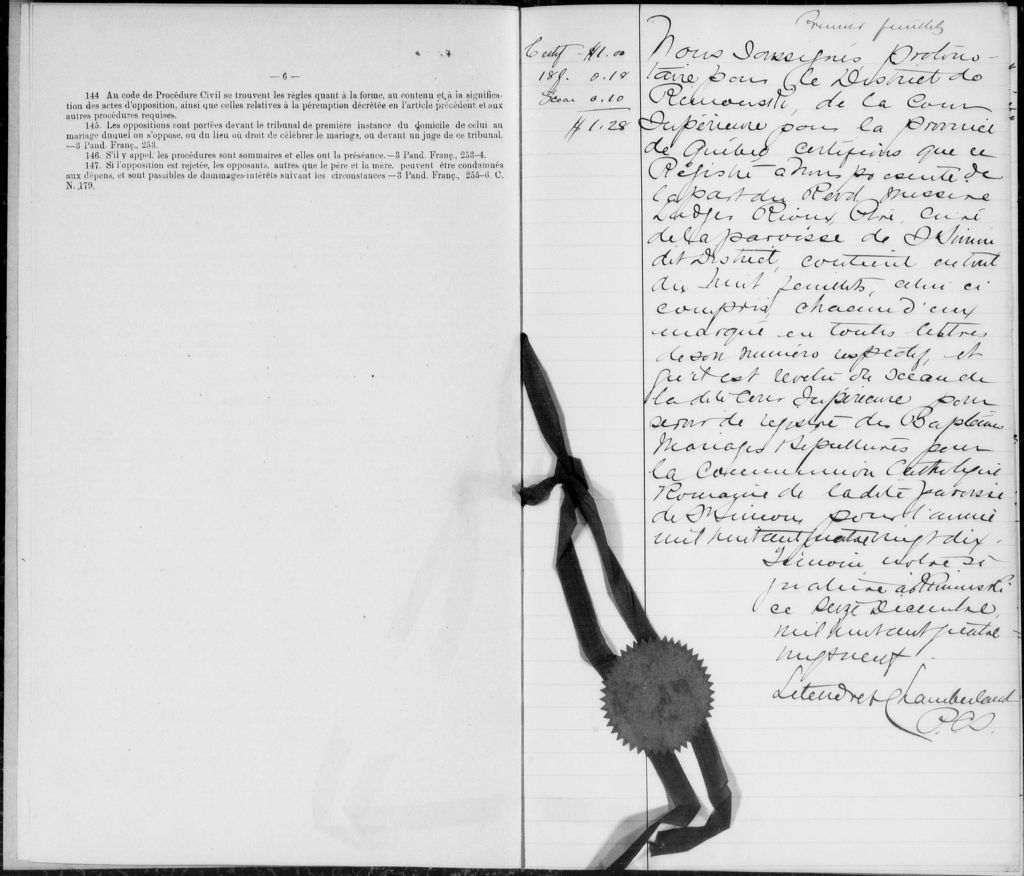 — 6 —
144 Au code de Procédure Civil se trouvent les règles quant à la forme, au contenu et à la significa-
tion des actes d'opposition, ainsi que celles relatives à la péremption décrétée en l'article précédent et aux
autres procédures requises.
145. Les oppositions sont portées devant le tribunal de première instance du domicile de celui au
mariage duquel on s'oppose, ou du lieu où droit de célébrer le mariage, ou devant un juge de ce tribunal.
—3 Pand. Franç., 253.
146. S'il y appel, les procédures sont sommaires et elles ont la préséance.—3 Pand. Franç., 253-4.
147. Si l'opposition est rejetée, les opposants, autres que le père et la mère, peuvent être condamnés
aux dépens, et sont passibles de dommages-intérêts suivant les circonstances—3 Pand. Franç., 255-6. C.
N. 179.
Certif $1.00
18 f. 0.18
Sceau 0.10
$1.28
Premier feuillet
Nous soussignés protono-
taire pour le District de
Rimouski, de la Cour
Supérieure pour la province
de Québec certifions que ce
Régistre à nous présenté de
la part du Révd Messire
Ludger Rioux, Ptre, curé
de la paroisse de St Simon
dit District, contient en tout
dix huit feuillets, celui ci
compris, chacun d'eux
marqué en toutes lettres
de son numéro respectif, et
qu'il est revêtu du sceau de
la dite Cour Supérieure pour
servir de régistre des Baptêmes
Mariages & Sépultures pour
la Communion Catholique
Romaine de la dite paroisse
de St Simon, pour l'année
mil huit cent quatre vingt dix.
Témoin, notre si
gnature à Rimouski
ce seize Décembre,
mil huit cent quatre
vingt neuf.
Letendre & Chamberland
P.C.S.